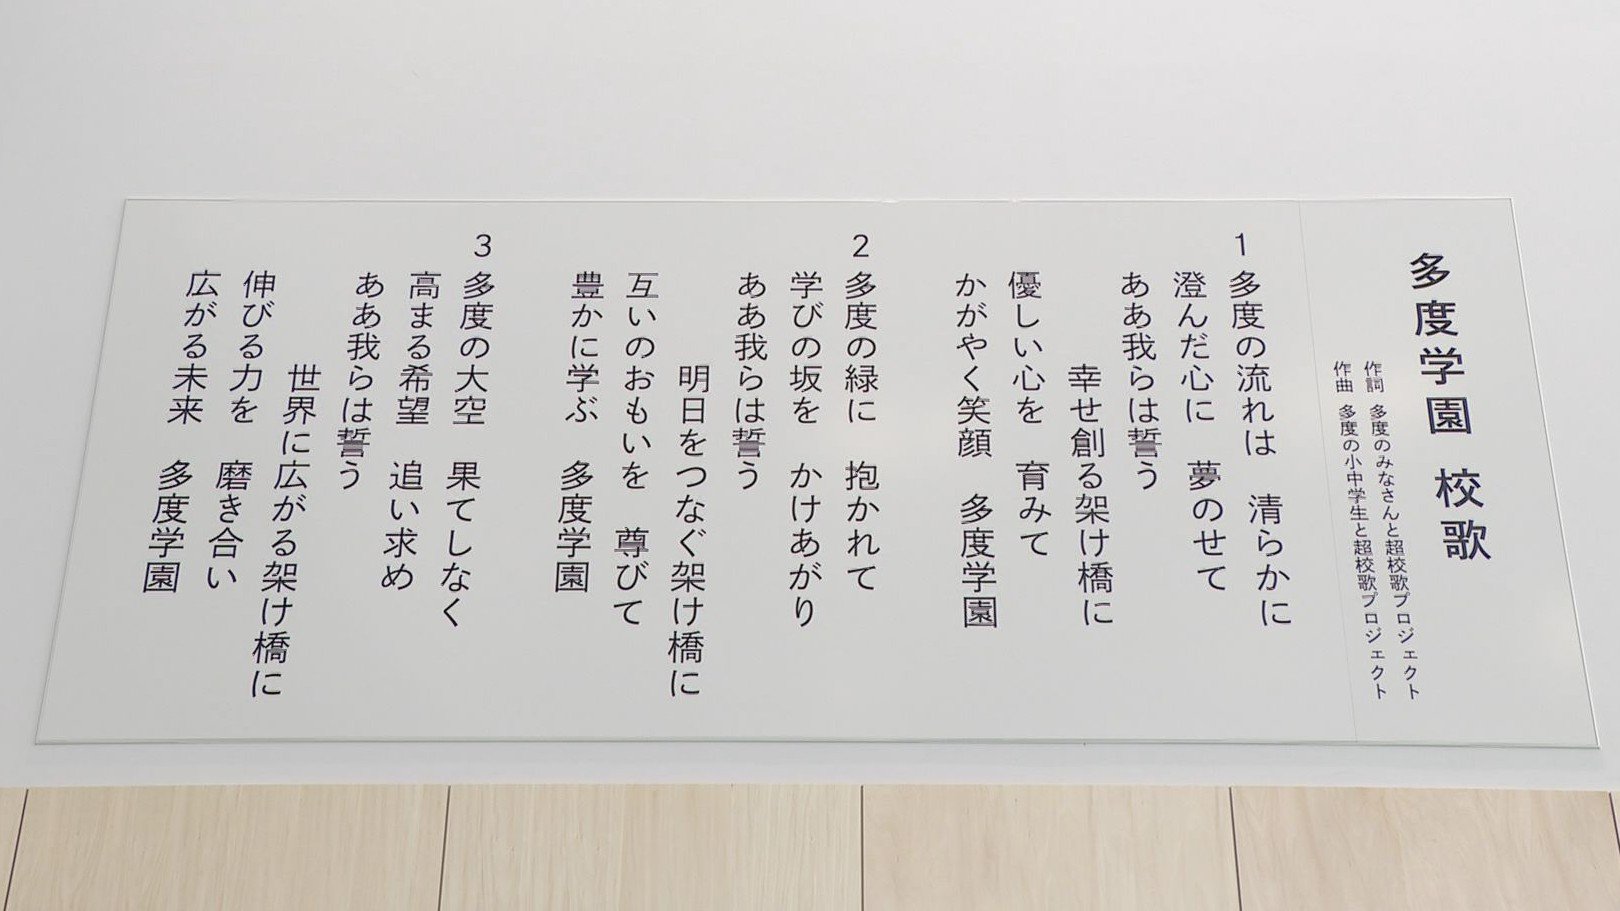 多度学園 校歌
作詞 多度のみなさんと超校歌プロジェクト
作曲 多度の小中学生と超校歌プロジェクト
1 多度の流れは 清らかに
澄んだ心に 夢のせて
ああ我らは誓う
幸せ創る架け橋に
優しい心を 育みて
かがやく笑顔 多度学園
2 多度の緑に 抱かれて
学びの坂を かけあがり
ああ我らは誓う
明日をつなぐ架け橋に
互いのおもいを 尊びて
豊かに学ぶ 多度学園
3 多度の大空 果てしなく
高まる希望 追い求め
ああ我らは誓う
世界に広がる架け橋に
伸びる力を 磨き合い
広がる未来 多度学園